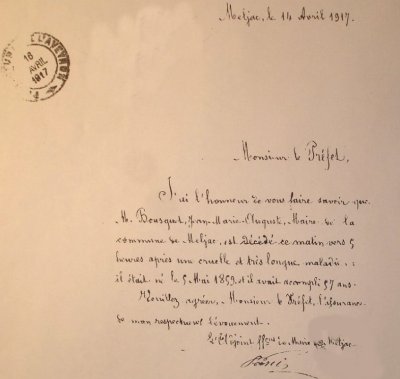 Meljac, le 14 Avril 1917.
DE L'AVEYRON
16
AVRIL
1917
Monsieur le Préfet,
J'ai l'honneur de vous faire savoir que
M. Bousquet, Jean-Marie-Auguste, Maire de la
commune de Meljac, est décédé ce matin vers 5
heures après une cruelle et très longue maladie :
il était né le 5 Mai 1859 et il avait accompli 57 ans.
Veuillez agréer, Monsieur le Préfet, l'assurance
de mon respectueux dévouement.
L'Adjoint ff.ons de Maire de Meljac